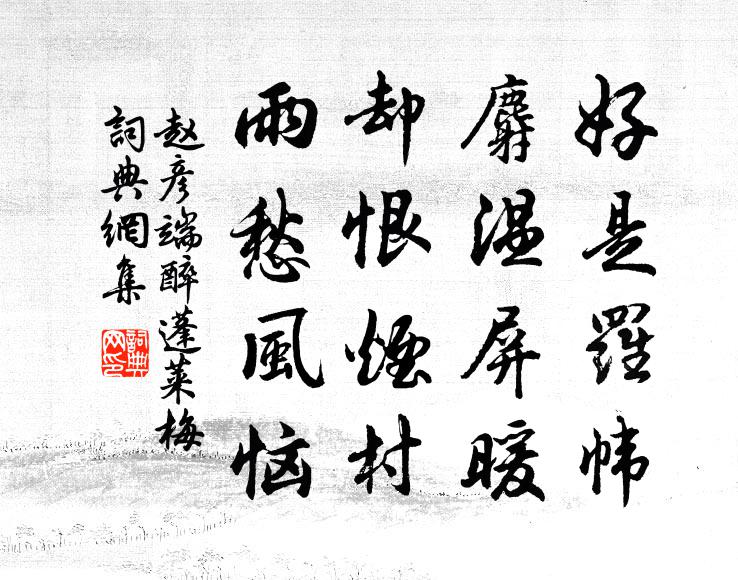 好是羅幃
麝溫屏暖
却恨煙村
雨愁風恼
赵彥端醉蓬莱梅
詞典網集
詞典網印